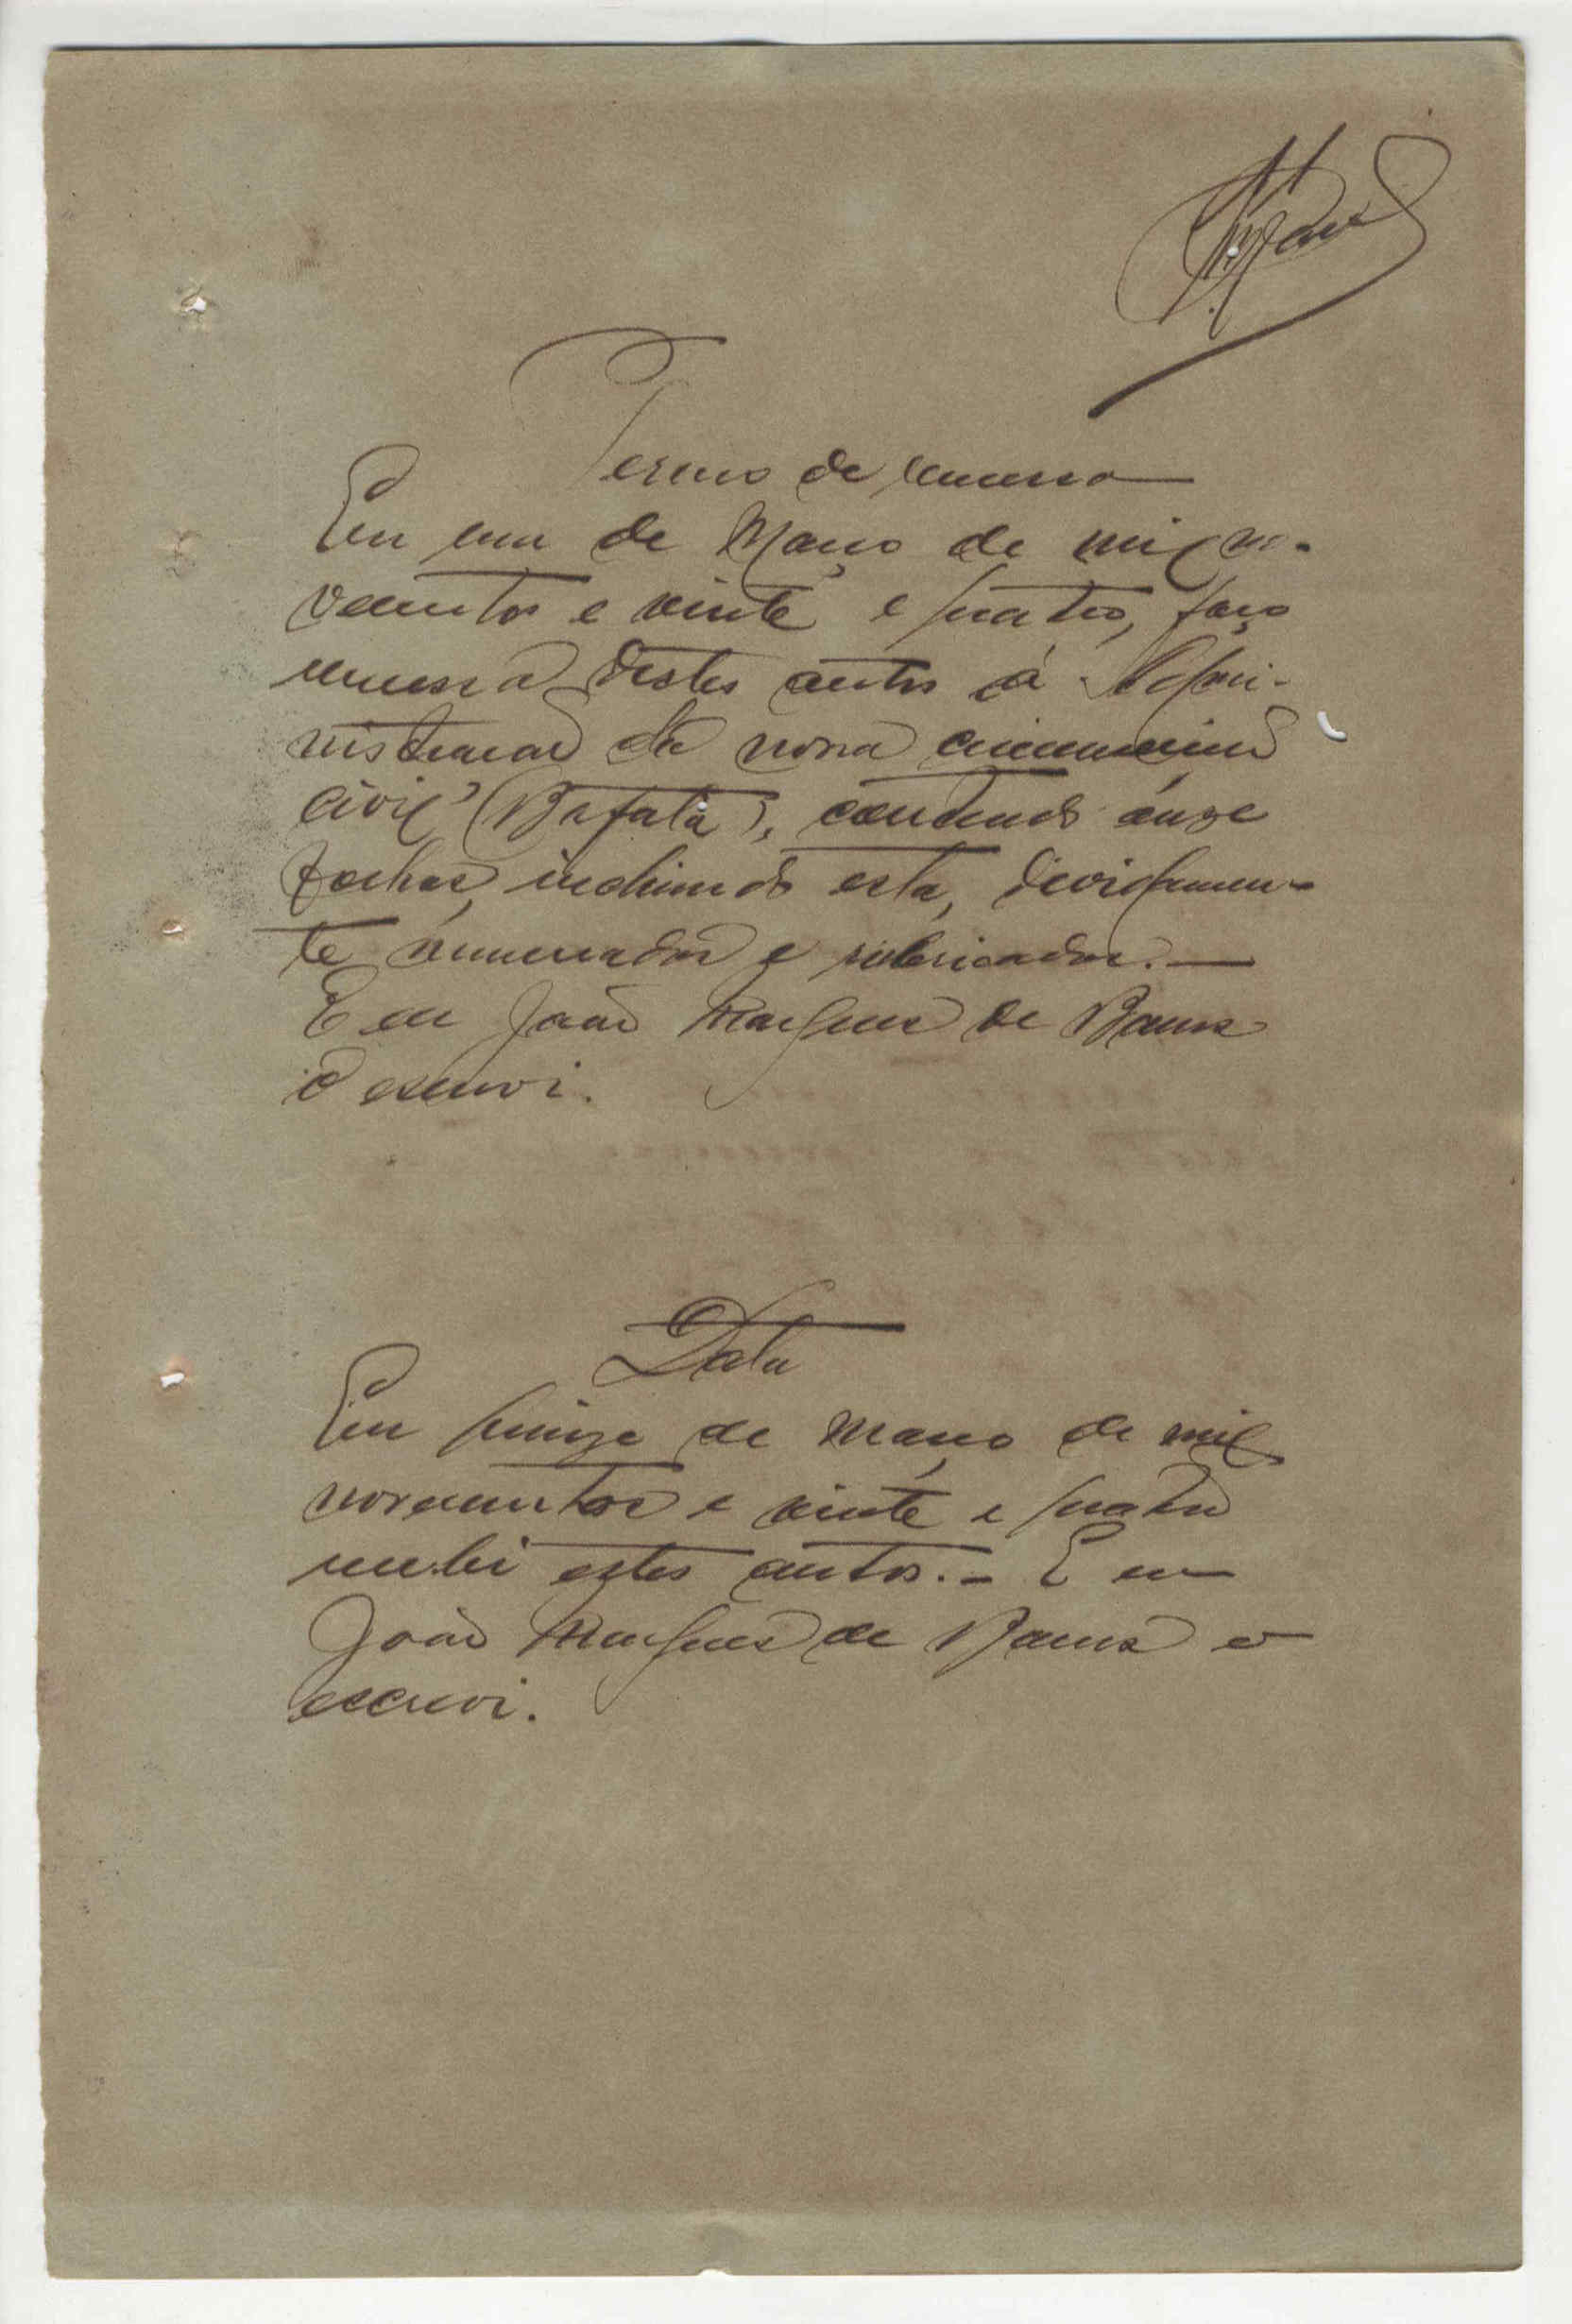 Termo de remessa
Em um de Março de mil no-
vecentos e vinte e quatro, faço
remessa destes autos á Admi-
nistração da nona circunscrição
civil (Bafatá), contendo onze
folhas, incluindo esta, devidamen-
te numeradas e rubricadas.—
E eu João Marques de Barros
o escrevi.
Data
Em quinze de Março de mil
novecentos e vinte e quatro
recebi estes autos.- E eu
João Marques de Barros o
escrevi.